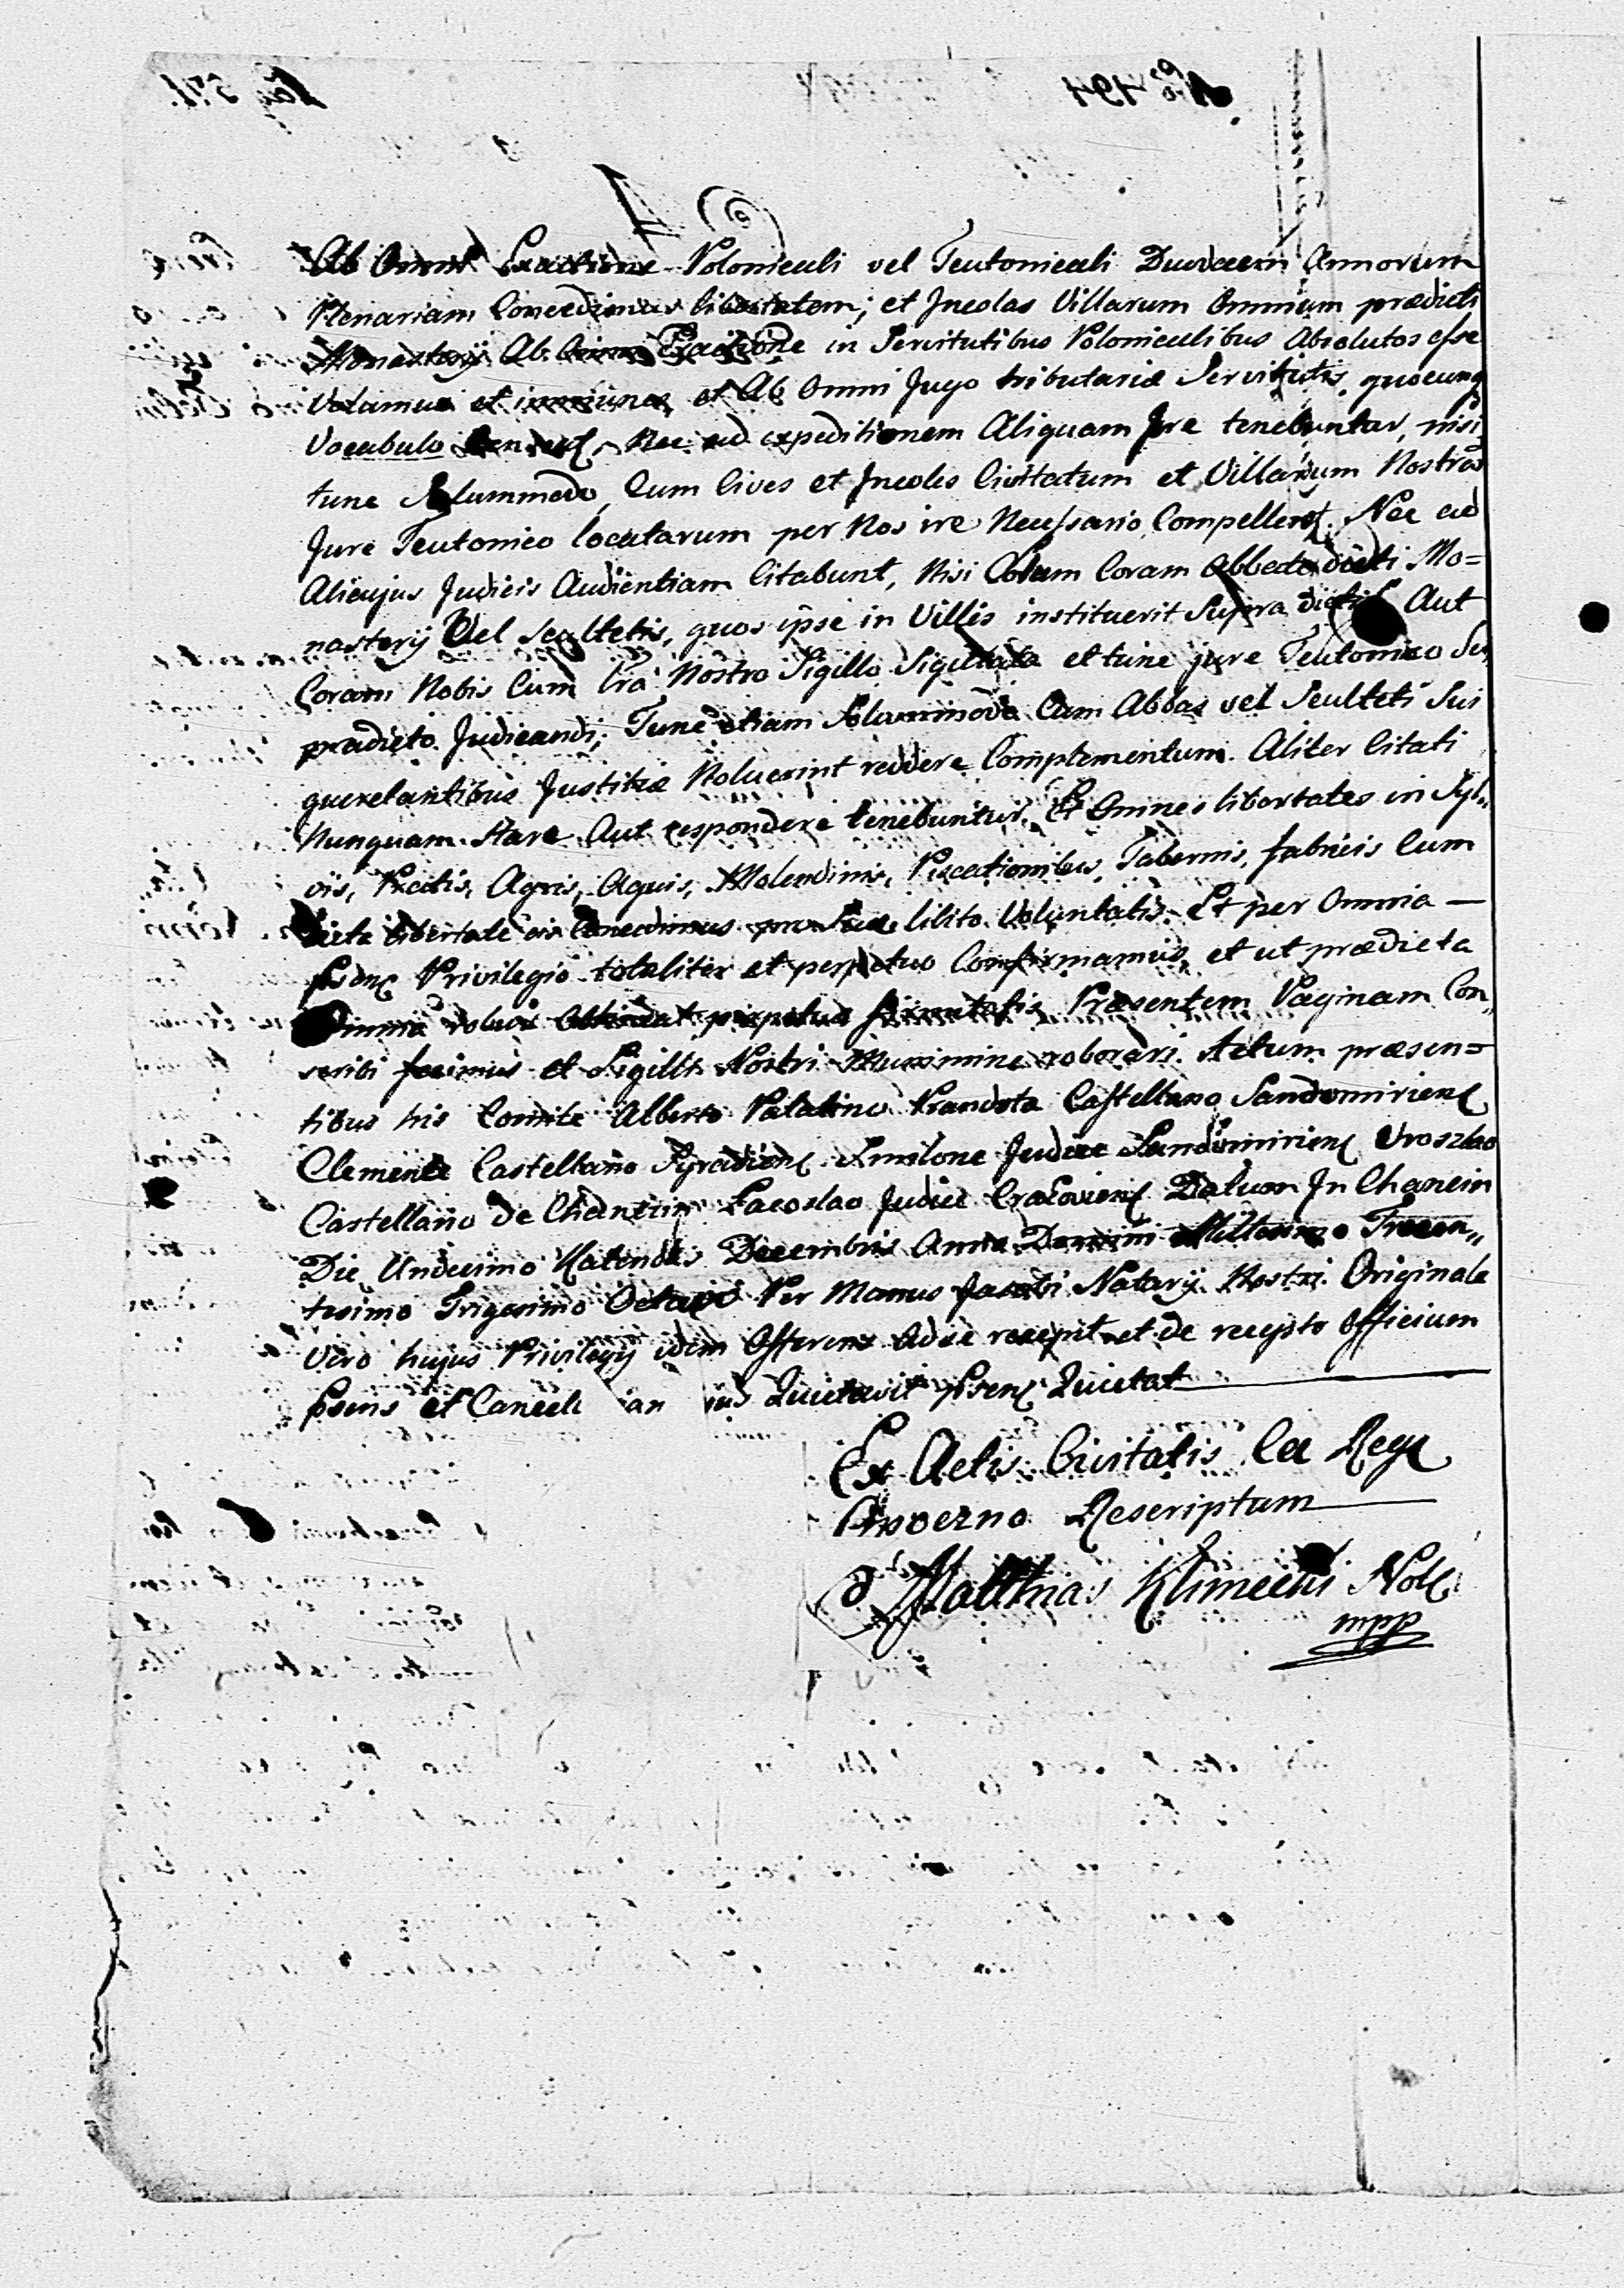 Ab Omni Exactione Polonicali vel Teutonicali Duodecim Annorum
Plenariam Concedimus libertatem; et Incolas Villarum Omnium prædicti
Monasterij Ab Omni Exactione in Servitutibus Polonicalibus Absolutos esse
Volumus et immunes, et Ab Omni Jugo tributariæ Servitutis, quocunq
Vocabulo Nec ad expeditionem Aliquam Ire tenebuntur, nisi
tunc Solummodo, Cum Cives et Incoles Civitatum et Villarum Nostrar
Jure Teutonico locatarum per Nos ire Necessario Compellent. Nec ad
Alicujus Judicis Audientiam Citabunt, Nisi Coram Abbate dicti Mo=
nasterij Vel Scultetis, quos ipse in Villis instituerit Supra dictis Aut
Coram Nobis Cum Lrã Nostro Sigillo Sigillata et tunc jure Teutonico Su„
pradicto Judicandi; Tunc etiam Solummodo Cum Abbas vel Sculteti Sui
querelantibus Justitiæ Noluerint reddere Complementum. Aliter Citati
Nunquam Stare Aut respondere tenebuntur. Et Omnes libertates in Syl„
vis, Pratis, Agris, Aquis, Molendinis, Piscationibus, Tabernis, fabricis Cum
dicta libertate Concedimus pro Suæ libito Voluntatis. Et per Omnia —
Privilegio totaliter et perpetuo Confirmamus, et ut prædicta
Omnia robur Obtineat perpetuæ firmitatis, Præsentem Paginam Con„
scribi fecimus et Sigilli Nostri Munimine roborari. Actum præsen=
tibus his Comite Alberto Palatino Prandota Castellano Sandomirien
Clemente Castellano Syradien Smilone Judice Sandomirien Vroszlao
Castellano de Chantzin Lacoslao Judice Cracovien Datum In Chancin
Die Undecimo Kalendas Decembris Anno Domini Millesimo Trecen„
tesimo Trigesimo Octavo Per Manus Jacobi Notarij Nostri. Originale
Vero hujus Privilegij idem Offerens ad se recepit et de recepto Officium
psens et Cancell Quietavit psen Quietat
Ex Actis Civitatis
Rescriptum
Matthias Klimecki Not
mpp